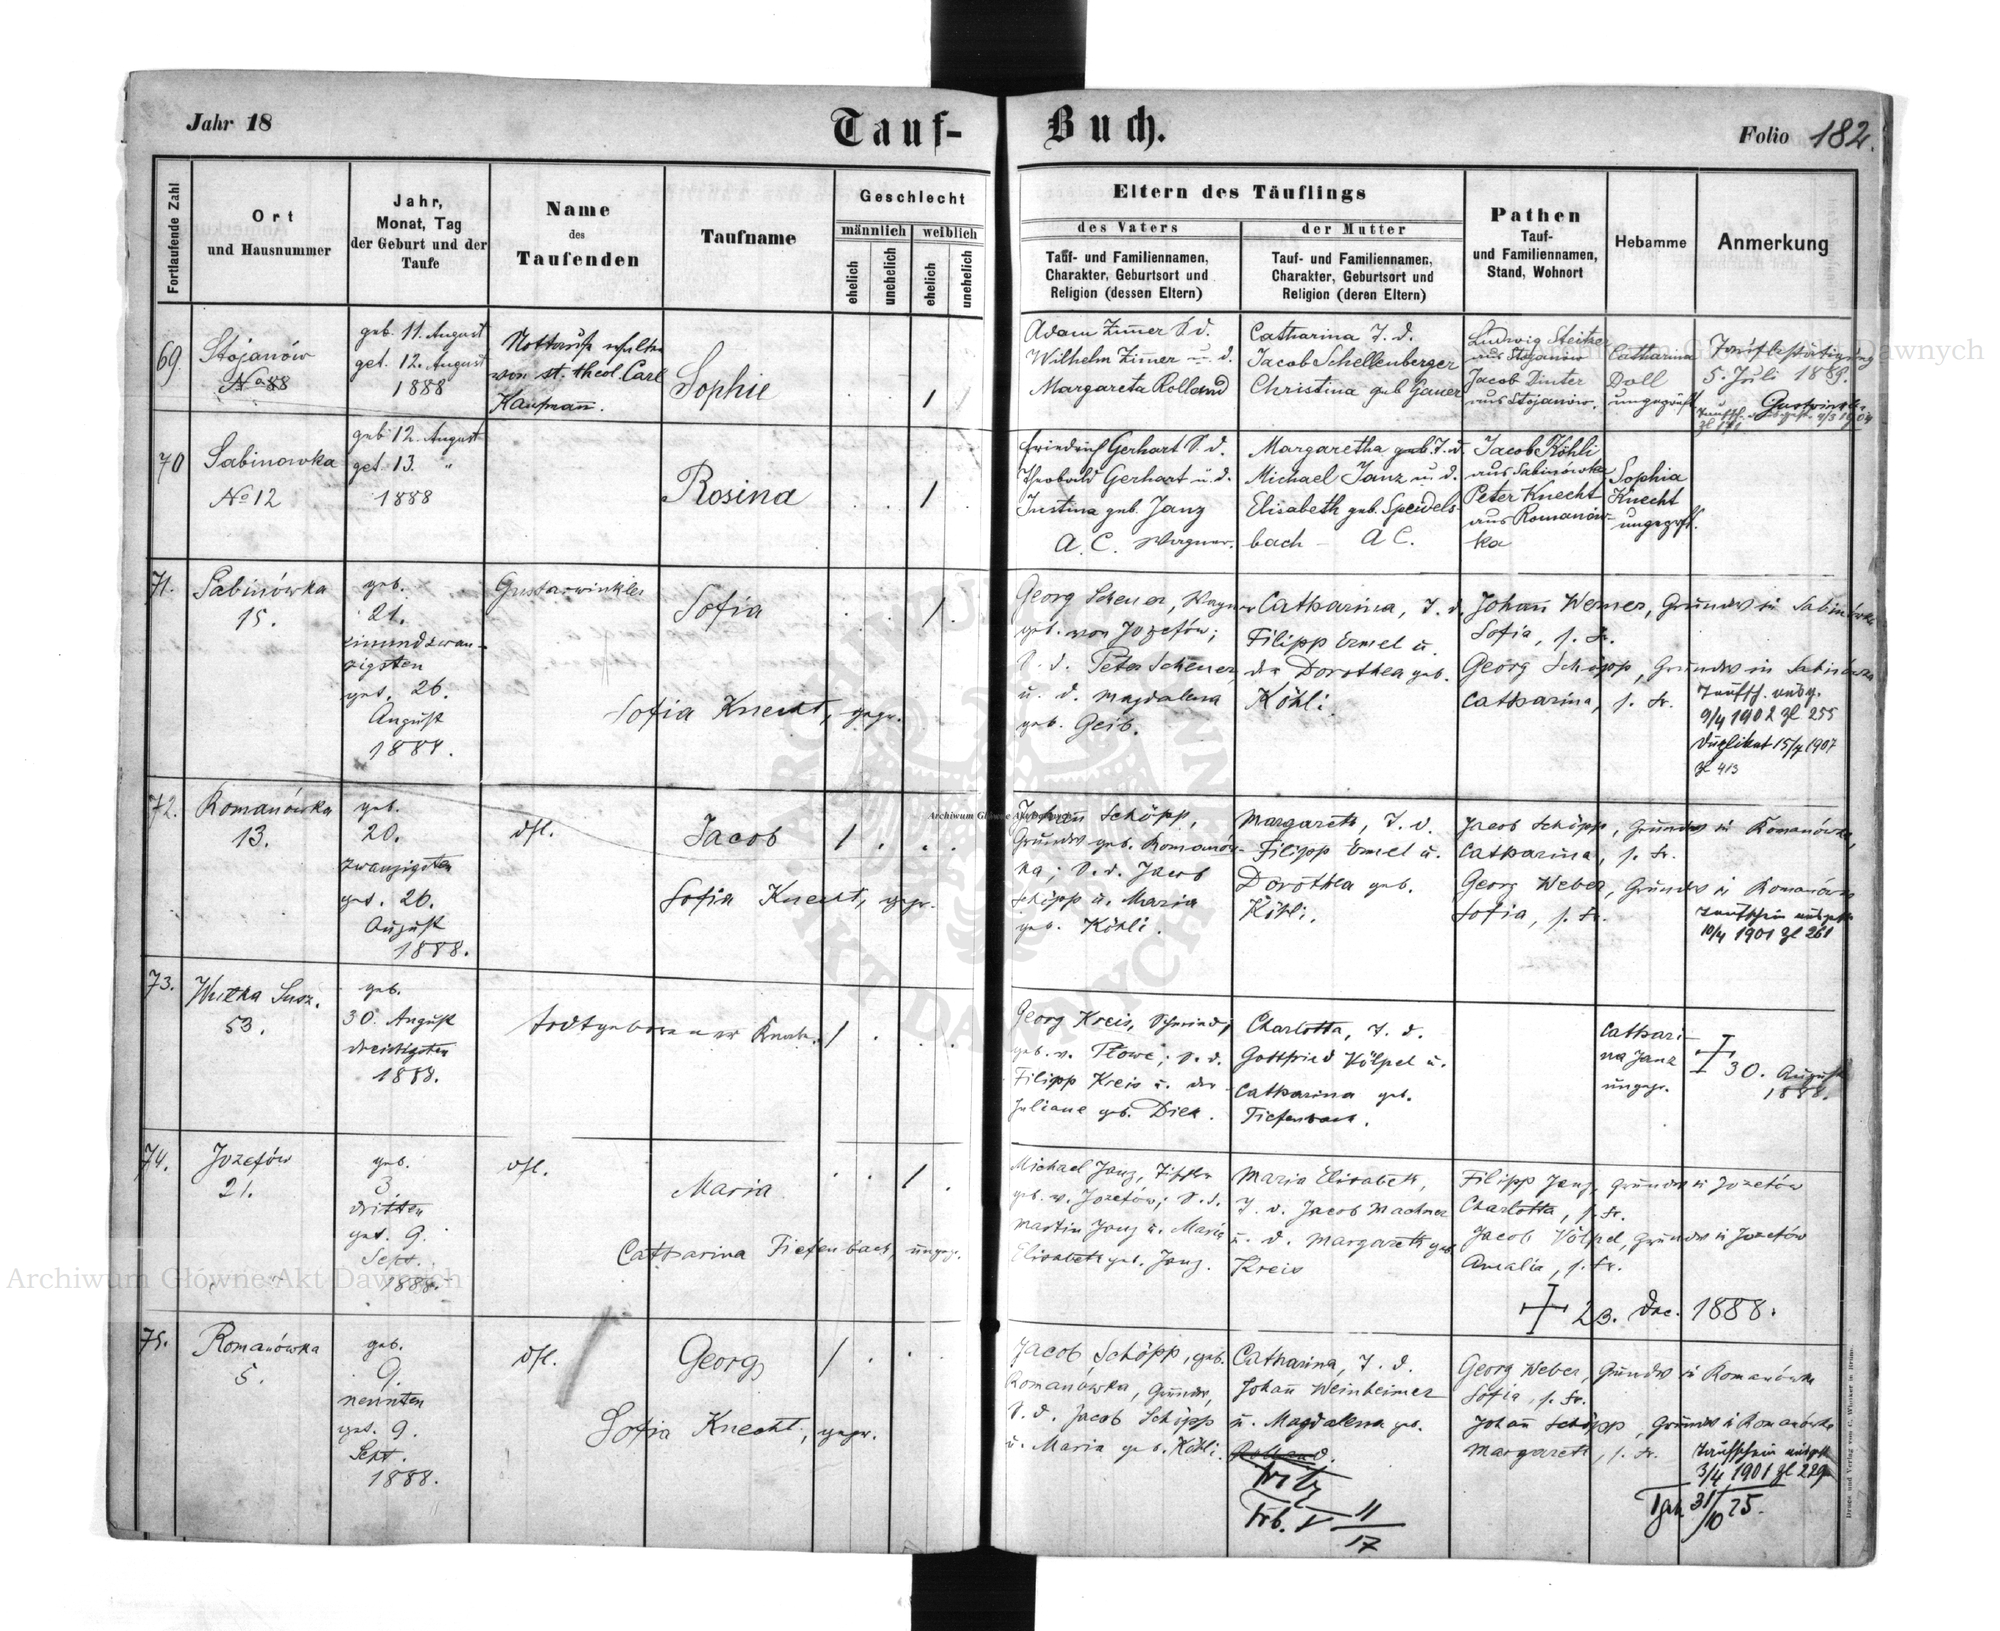 Jahr 18
Tauf-
Buch.
Folio 182.
Fortlaufende Zahl
Ort
und Hausnummer
Jahr,
Monat, Tag
der Geburt und der
Taufe
Name
des
Taufenden
Taufname
Geschlecht
männlich
weiblich
ehelich
unehelich
ehelich
unehelich
Eltern des Täuflings
des Vaters
Tauf- und Familiennamen,
Charakter, Geburtsort und
Religion (dessen Eltern)
der Mutter
Tauf- und Familiennamen,
Charakter, Geburtsort und
Religion (deren Eltern)
Pathen
Tauf-
und Familiennamen,
Stand, Wohnort
Hebamme
Anmerkung
69.
Stojanów
No 88
geb. 11. August
get. 12. August
1888
Nottaufe erhalten
von st. theol. Carl
Kaufmann.
Sophie
Adam Zimer S. d.
Wilhelm Zimer u. d.
Margareta Rolland
Catharina T. d.
Jacob Schellenberger
Christina geb Gauer
Ludwig Steitzer
aus Stojanow
Jacob Dinter
aus Stojanow.
Catharina
Doll
ungeprüft
Taufbestätigung
5. Juli 1889.
70
Sabinowka
No 12
geb 12. August
get. 13. "
1888
Rosina
Friedrich Gerhart S. d.
Theobald Gerhart u. d.
Justina geb. Janz
A. C. Wagner.
Margaretha geb. T. d.
Michael Janz u. d.
Elisabeth geb. Speidels-
bach - A C.
Jacob Köhli
aus Sabinówka
Peter Knecht
aus Romanów-
ka
Sophia
Knecht
ungeprft.
71.
Sabinówka
15.
geb.
21.
einundzwan-
zigsten
get. 26.
August
1888.
Gustavwinkler
Sofia
Sofia Knecht, gepr.
Georg Scheuer, Wagner
geb. von Jozefów;
S. d. Peter Scheuer
u. d. Magdalena
geb. Geib.
Catharina, T. d.
Filipp Ermel u.
der Dorothea geb.
Köhli.
Johann Werner, Grundw in Sabinówka
Sofia, s. Fr.
Georg Schöpp, Grundw in Sabinówka
Catharina, s. Fr.
Taufsch. ausg.
9/4 1902 Zl 255
Duplikat 15/7 1907
Zl 413
72.
Romanówka
13.
geb.
20.
zwanzigsten
get. 26.
August
1888.
dsl.
Jacob
Sofia Knecht, gepr.
Johann Schöpp,
Grundw geb. Romanów-
ka; S. d. Jacob
Schöpp u. Maria
geb. Köhli.
Margareth, T. d.
Filipp Ermel u.
Dorothea geb.
Köhli.
Jacob Schöpp, Grundw in Romanówka,
Catharina, s. Fr.
Georg Weber, Grundw in Romanówka
Sofia, s. Fr.
Taufschein ausgest.
10/4 1901 Zl 261
73.
Wulka Susz.
53.
geb.
30. August
dreisigsten
1888.
todtgeborener Knabe.
Georg Kreis, Schmied;
geb. v. Plowe; S. d.
Filipp Kreis u. der
Juliane geb. Diek.
Charlotta, T. d.
Gottfried Völpel u.
Catharina geb.
Tiefenbach.
Cathari-
na Janz
ungepr.
30. August
1888.
74.
Jozefów
21.
geb.
3
dritten
get. 9.
Sept.
1888.
dsl.
Maria
Catharina Tiefenbach, ungepr.
Michael Janz, Tischler
geb. v. Jozefów; S. d.
Martin Janz u. Maria
Elisabeth geb. Janz.
Maria Elisabeth,
T. d. Jacob Machmer
u. d. Margareth geb.
Kreis
Filipp Janz, Grundw in Jozefów
Charlotta, s. Fr.
Jacob Völpel, Grundw in Jozefów
Amalia, s. Fr.
23. Dec. 1888.
75.
Romanówka
5.
geb.
9.
neunten
get. 9.
Sept.
1888.
dsl.
Georg
Sofia Knecht, gepr.
Jacob Schöpp, geb.
Romanówka, Grundw,
S. d. Jacob Schöpp
u. Maria geb. Köhli.
Catharina, T. d.
Johann Weinheimer
u. Magdalena geb.
Rolland.
Trb. V 11/17
Georg Weber, Grundw in Romanówka
Sofia, s. Fr.
Johann Schöpp, Grundw in Romanówka
Margareth, s. Fr.
Taufschein ausgest
3/4 1901 Zl 229
31/10 25.
Druck und Verlag von C. Winiker in Brünn.
Archiwum Główne Akt Dawnych
Archiwum Główne Akt Dawnych
Archiwum Główne Akt Dawnych
ARCHIWUM GŁÓWNE AKT DAWNYCH